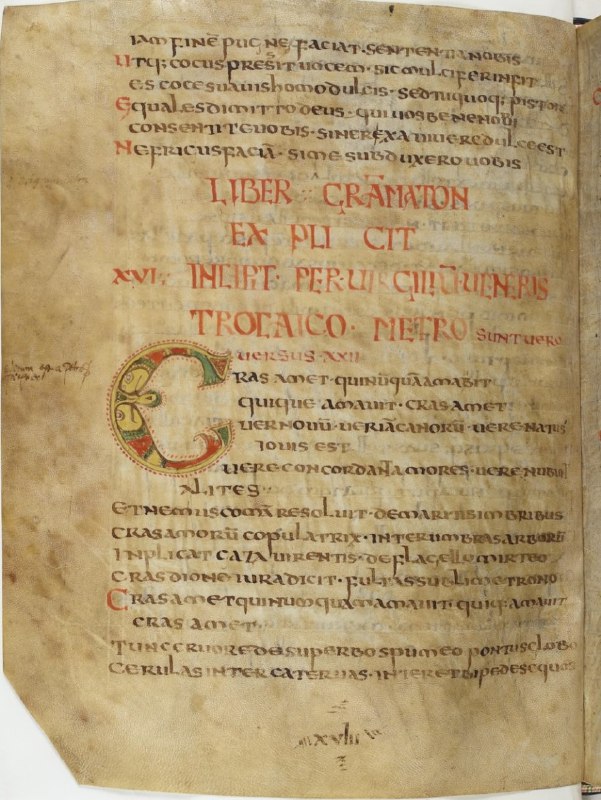 IAM FINĒ PUGNE FACIAT · SENTENTIA NOBIS
UTQ: COCUS PRESSIT UOCEM · SIC MULCIFER INFIT
ES COCE SUAUIS HOMO DULCIS · SED TU QUOQ: PISTOR E
EQUALES DIMITTO DEUS · QUI UOS BENE NOBI
CONSENTITE UOBIS · SINE REXA UIUERE DULCE EST
NE FRICUS FACIĀ · SI ME SUBDUXERO UOBIS
LIBER GRĀMATON
EXPLICIT
XVI · INCIPT · PERUIRGILIŪ · UENERIS
TROCAICO · METRO SUNT UERO
UERSUS XXII
CRAS AMET · QUI NŪQUĀ AMABIT
QUIQUE AMAUIT · CRAS AMET
UER NOUŪ UER IĀ CANORŪ UERE NATUS
IOUIS EST
UERE CONCORDANT AMORES · UERE NUBUN
ALITES
ET NEMUS COMĀ RESOLUIT · DE MARITIS IMBRIBUS
CRAS AMORŪ COPULATRIX · INTER UMBRAS ARBORŪ
INPLICAT CAZA UIRENTIS · DE FLAGELLO MIRTEO
CRAS DIONE IURA DICIT · FULTA SSUBLIME TRONO
CRAS AMET QUI NUMQUAM AMAUIT · QUIQ: AMAUIT
CRAS AMET
TUNC CRUORE DE SUPERBO SPUMEO PONTUS CLOBO
CERULAS INTER CATERUAS · INTER ET BIPEDES EQUOS
XVIII